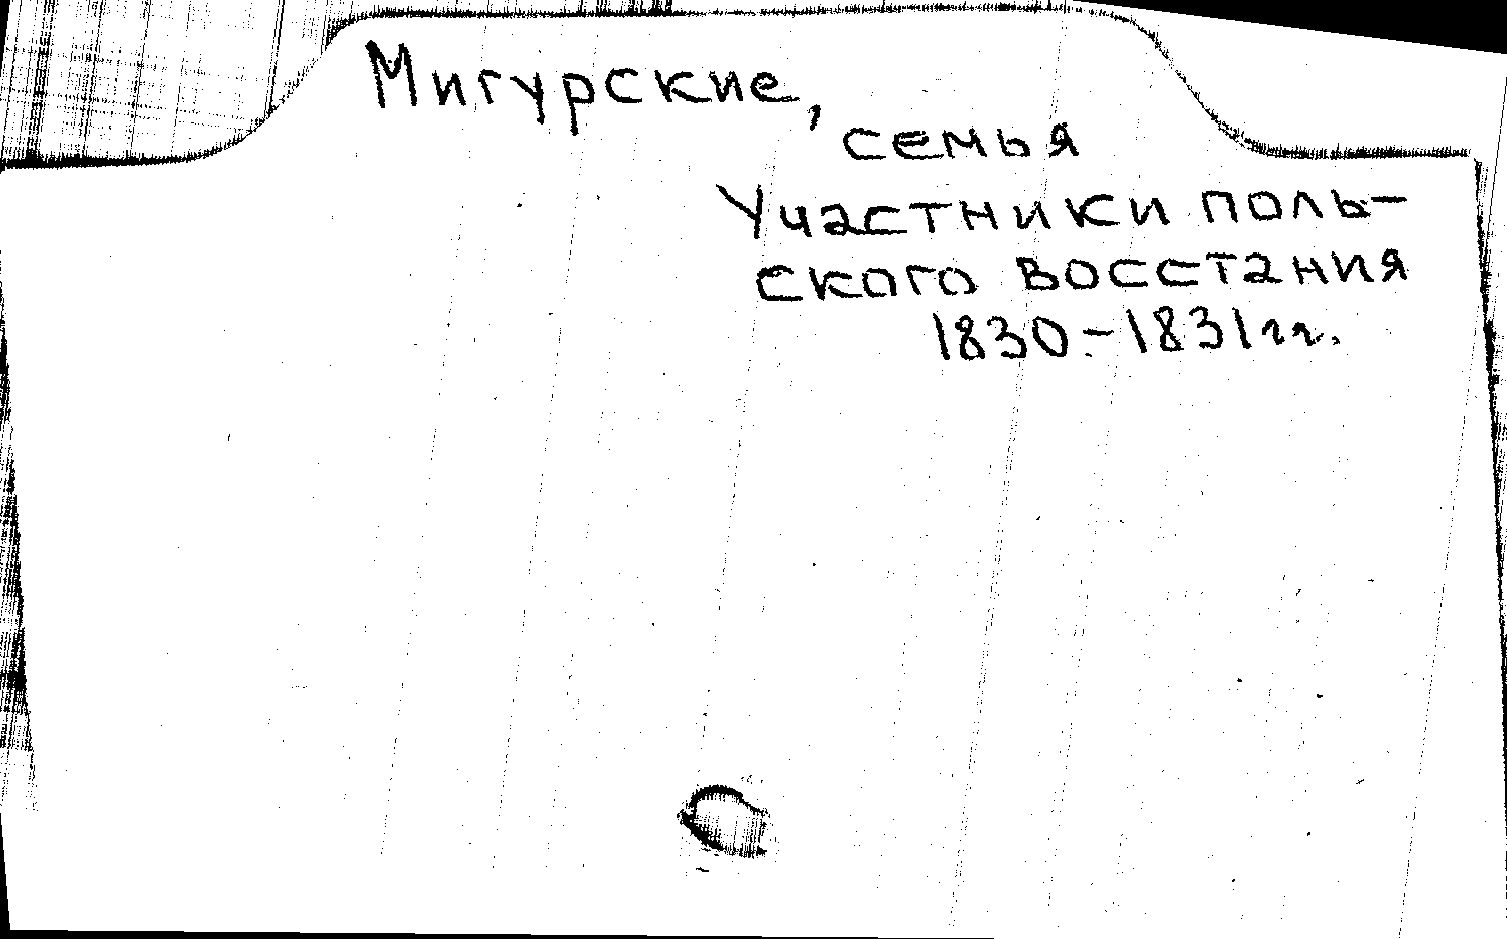 Мигурские,
семья
Участники поль-
ского восстания
1830-1831 гг.